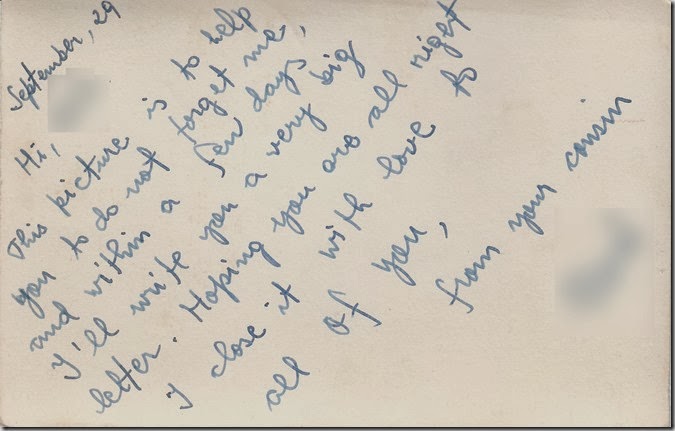 September, 29
Hi,
This picture is to help
you to do not forget me,
and within a few days
I'll write you a very big
letter. Hoping you are all right
I close it with love to
all of you,
from your cousin